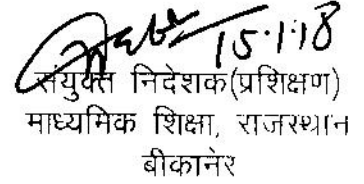 15.1.18
संयुक्त निदेशक(प्रशिक्षण)
माध्यमिक शिक्षा, राजस्थान
बीकानेर